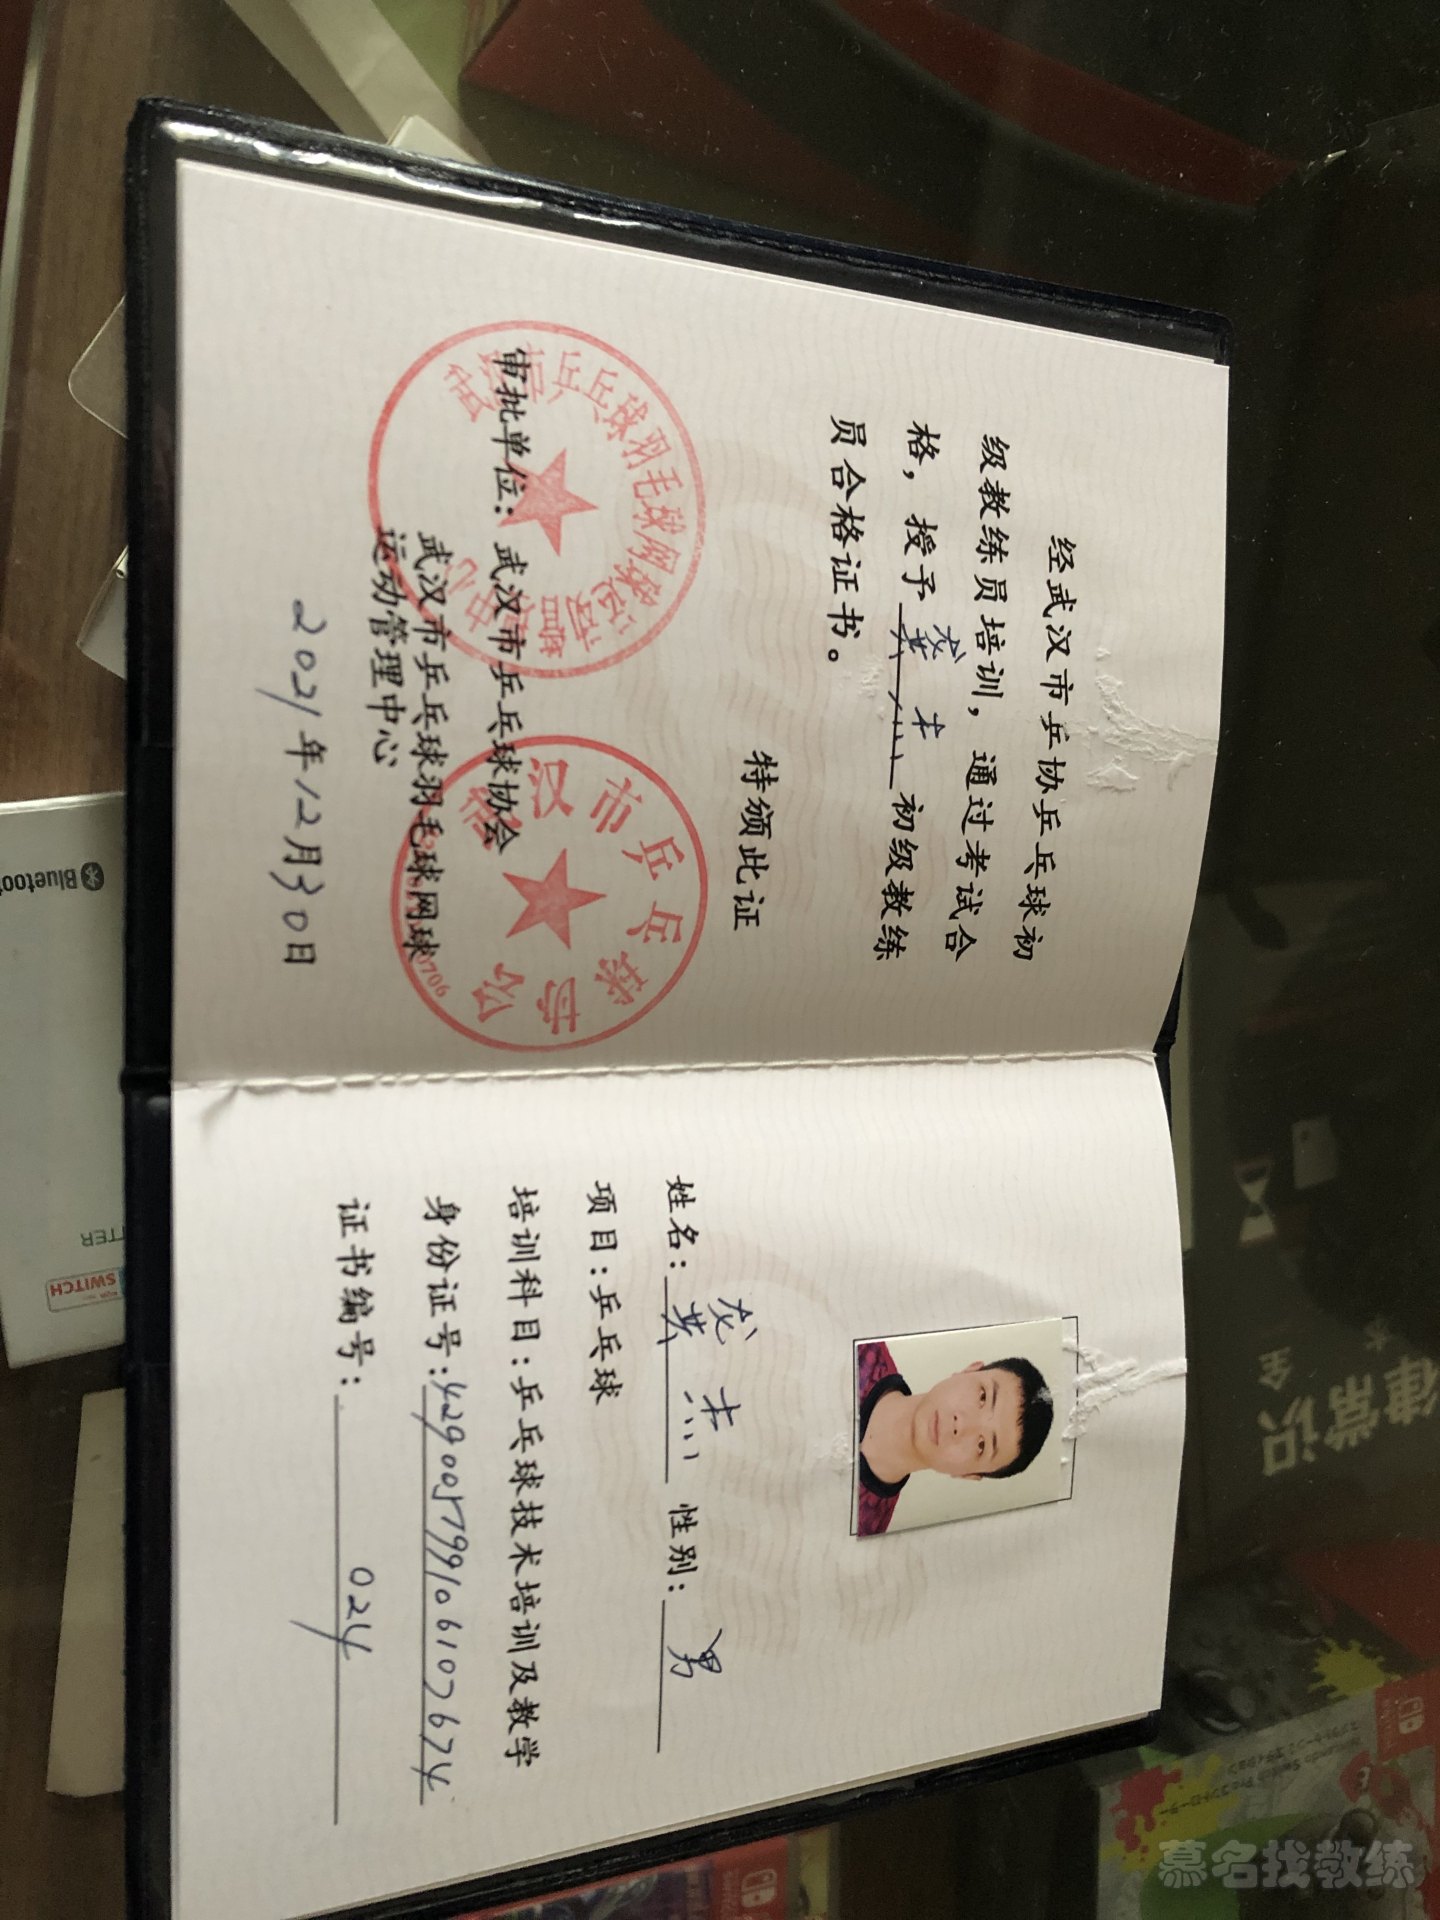 经武汉市乒协乒乓球初
级教练员培训，通过考试合
格，授予 龚杰 初级教练
员合格证书。
特颁此证
审批单位：武汉市乒乓球协会
武汉市乒乓球羽毛球网球
运动管理中心
2021年12月30日
姓名：龚杰 性别：男
项目：乒乓球
培训科目：乒乓球技术培训及教学
身份证号：429005199106102674
证书编号：024
Bluetoot
SWITCH
律常识
全
慕名找教练